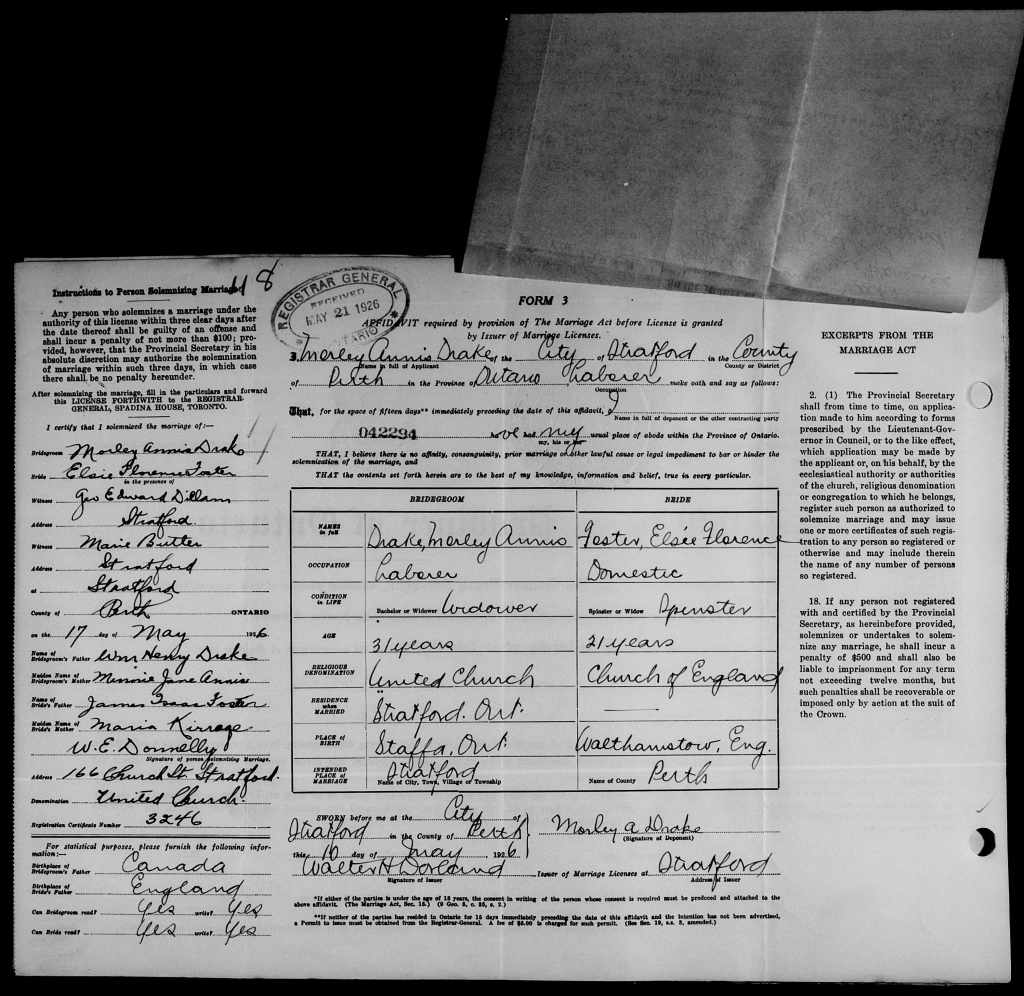 118
Instructions to Person Solemnizing Marriage
Any person who solemnizes a marriage under the
authority of this license within three clear days after
the date thereof shall be guilty of an offense and
shall incur a penalty of not more than $100; pro-
vided, however, that the Provincial Secretary in his
absolute discretion may authorize the solemnization
of marriage within such three days, in which case
there shall be no penalty hereunder.
After solemnizing the marriage, fill in the particulars and forward
this LICENSE FORTHWITH to the REGISTRAR-
GENERAL, SPADINA HOUSE, TORONTO.
I certify that I solemnized the marriage of:—
Bridegroom Morley Annis Drake
Bride Elsie Florence Foster
in the presence of
Witness Geo Edward Dillam
Address Stratford
Witness Marie Butter
Address Stratford
at Stratford
County of Perth ONTARIO
on the 17 day of May 1926
Name of Bridegroom's Father Wm Henry Drake
Maiden Name of Bridegroom's Mother Minnie Jane Annis
Name of Bride's Father James Isaac Foster
Maiden Name of Bride's Mother Maria Kirrage
W. E. Donnelly
Signature of person solemnizing Marriage.
Address 166 Church St. Stratford.
Denomination United Church.
Registration Certificate Number 3246
For statistical purposes, please furnish the following infor-
mation:—
Birthplace of Bridegroom's Father Canada
Birthplace of Bride's Father England
Can Bridegroom read? Yes write? Yes
Can Bride read? Yes write? Yes
REGISTRAR GENERAL
RECEIVED
MAY 21 1926
ONTARIO
FORM 3
AFFIDAVIT required by provision of The Marriage Act before License is granted
by Issuer of Marriage Licenses.
I, Morley Annis Drake of the City of Stratford in the County
Name in full of Applicant County or District
of Perth in the Province of Ontario Laborer make oath and say as follows:
Occupation
That, for the space of fifteen days** immediately preceding the date of this affidavit, I
Name in full of deponent or the other contracting party
042294 have had my usual place of abode within the Province of Ontario.
my, his or her
THAT, I believe there is no affinity, consanguinity, prior marriage or other lawful cause or legal impediment to bar or hinder the
solemnization of the marriage, and
THAT the contents set forth herein are to the best of my knowledge, information and belief, true in every particular.
BRIDEGROOM BRIDE
NAMES in full Drake, Morley Annis Foster, Elsie Florence
OCCUPATION Laborer Domestic
CONDITION in LIFE Bachelor or Widower Widower Spinster or Widow Spinster
AGE 31 years 21 years
RELIGIOUS DENOMINATION United Church Church of England
RESIDENCE when MARRIED Stratford. Ont.
PLACE OF BIRTH Staffa, Ont. Walthamstow, Eng.
INTENDED PLACE OF MARRIAGE Stratford Perth
Name of City, Town, Village or Township Name of County
SWORN before me at the City of
Stratford in the County of Perth
this 16 day of May 1926
Morley A Drake
(Signature of Deponent)
Walter H Dorland Issuer of Marriage Licenses at Stratford
Signature of Issuer Address of Issuer
*If either of the parties is under the age of 18 years, the consent in writing of the person whose consent is required must be produced and attached to the
above affidavit. (The Marriage Act, Sec. 15.) (9 Geo. 5, c. 35, s. 2.)
**If neither of the parties has resided in Ontario for 15 days immediately preceding the date of this affidavit and the intention has not been advertised,
a Permit to issue must be obtained from the Registrar-General. A fee of $5.00 is charges for such permit. (See Sec. 19, s.s. 3, amended.)
EXCERPTS FROM THE
MARRIAGE ACT
2. (1) The Provincial Secretary
shall from time to time, on applica-
tion made to him according to forms
prescribed by the Lieutenant-Gov-
ernor in Council, or to the like effect,
which application may be made by
the applicant or, on his behalf, by the
ecclesiastical authority or authorities
of the church, religious denomination
or congregation to which he belongs,
register such person as authorized to
solemnize marriage and may issue
one or more certificates of such regis-
tration to any person so registered or
otherwise and may include therein
the name of any number of persons
so registered.
18. If any person not registered
with and certified by the Provincial
Secretary, as hereinbefore provided,
solemnizes or undertakes to solem-
nize any marriage, he shall incur a
penalty of $500 and shall also be
liable to imprisonment for any term
not exceeding twelve months, but
such penalties shall be recoverable or
imposed only by action at the suit of
the Crown.